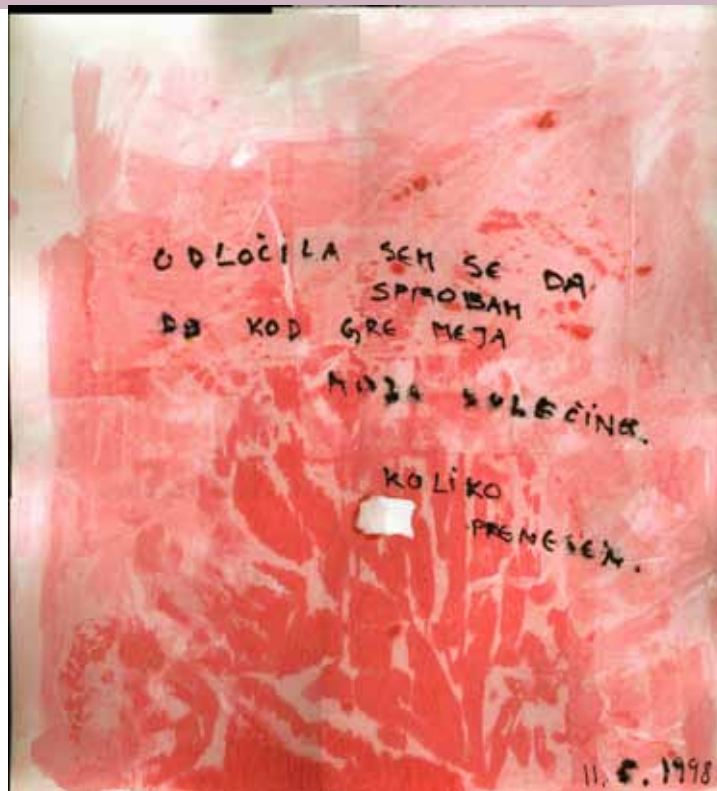 ODLOČILA SEM SE DA
SPROBAM
DO KOD GRE MEJA
MOJA BOLEČINA.
KOLIKO
PRENESEM.
11. 5. 1998